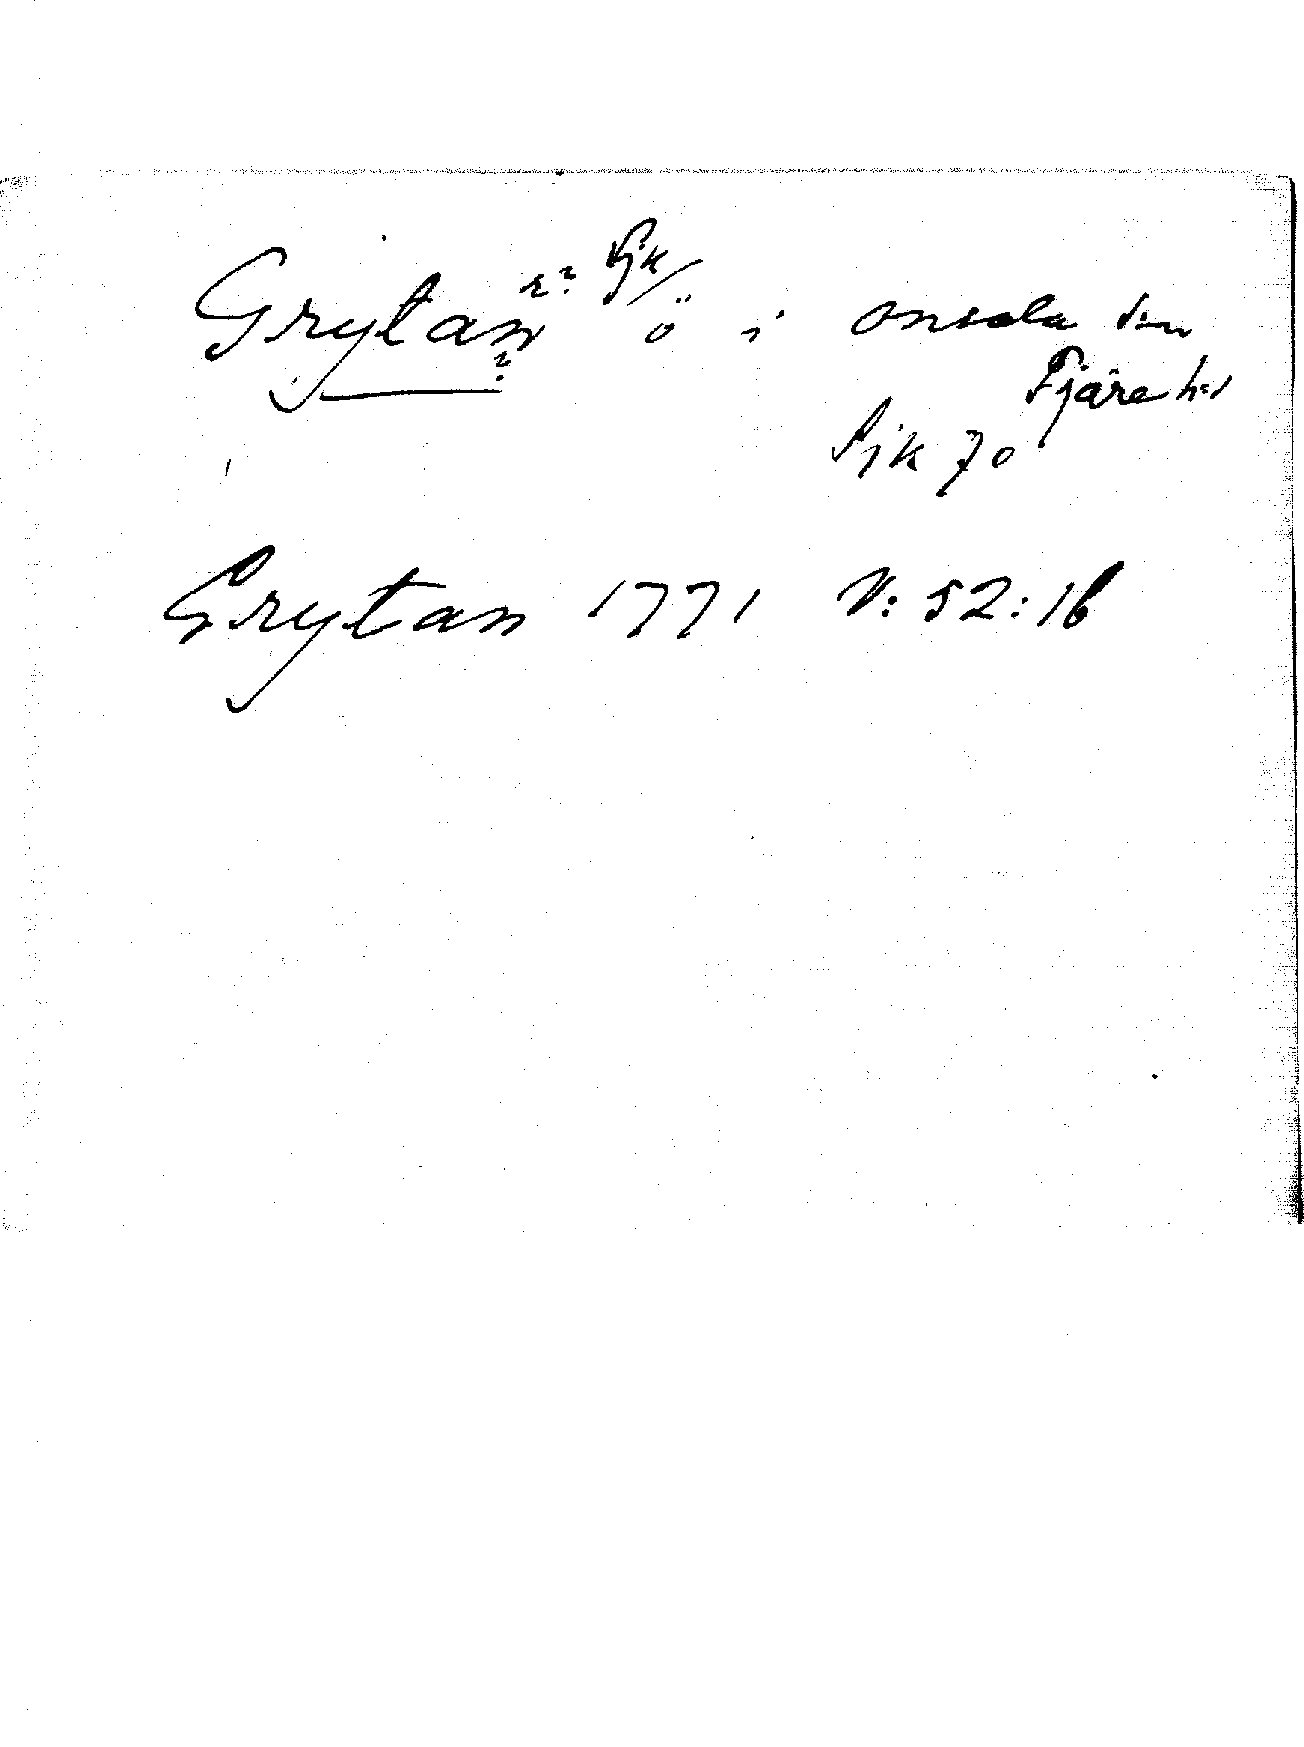 Grytan r? Sjk/ ö i Onsala sn
?
Fjäre hd
Sjk 70
Grytan 1771 V: 52:16